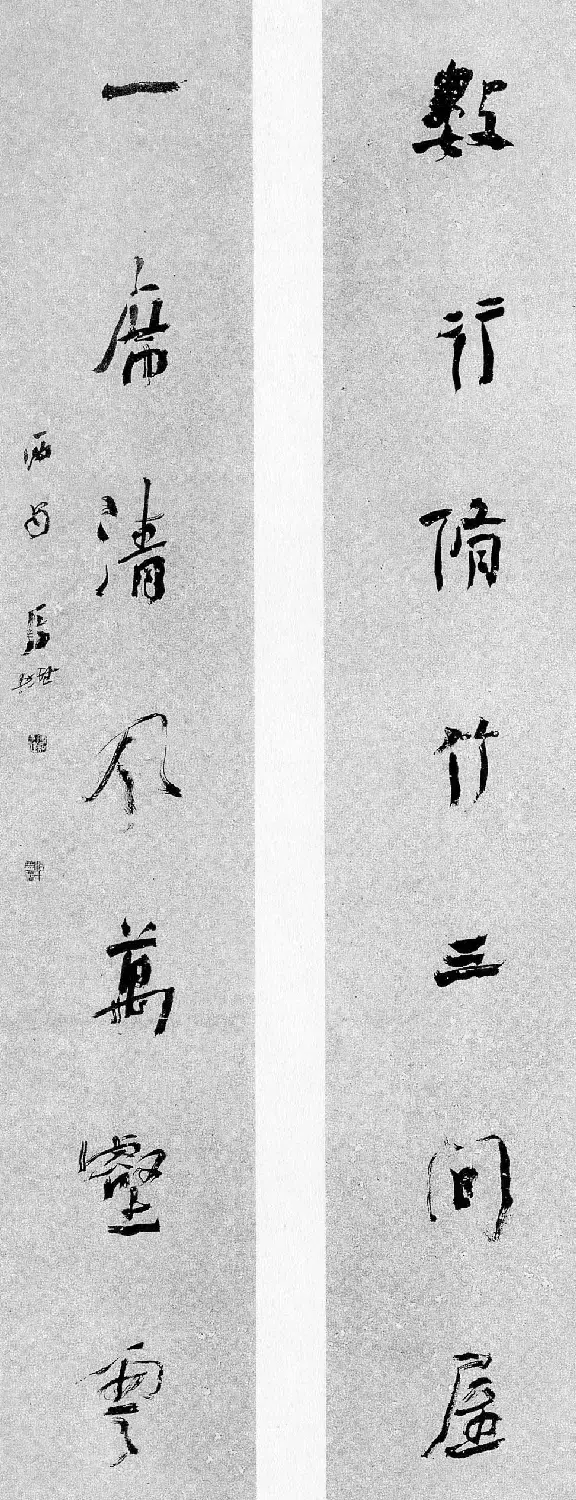 數行脩竹三间屋
一席清風萬壑雲